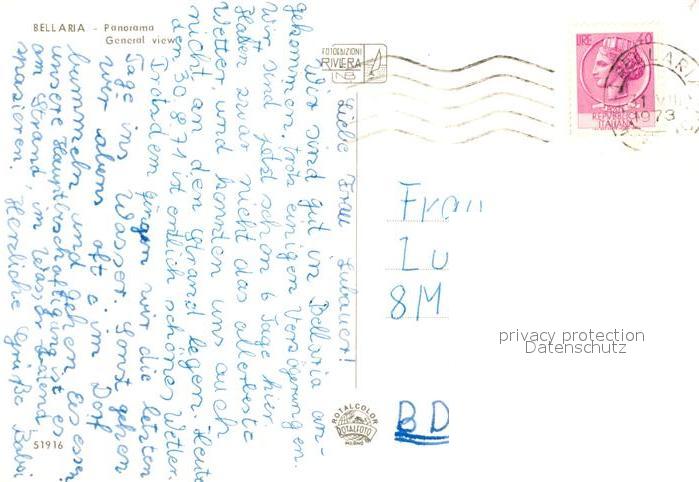 BELLARIA - Panorama
General view
FOTOEDIZIONI
RIVIERA
LIRE 40
REPUBBLICA
ITALIANA
BELLARIA
1973
Liebe Frau
Wir sind gut in Bellaria an-
gekommen, trotz einigen Verzögerungen.
Wir sind jetzt schon 6 Tage hier.
Hatten zwar nicht das allerbeste
Wetter, und konnten uns auch
nicht an den Strand legen. Heute
den 30.8.71 ist entlich schönes Wetter.
Trotsdem gingen wir die letzten
Tage ins Wasser. Sonst gehen
wir abens oft im Dorf
bummeln und gehen Eis essen
unsere Hauptbeschäftigung ist es
am Strand, im Wasser
spazieren. Herzliche Grüße
Frau
Lu
8M
BD
privacy protection
Datenschutz
ROTALCOLOR
ROTALFOTO
MILANO
51916